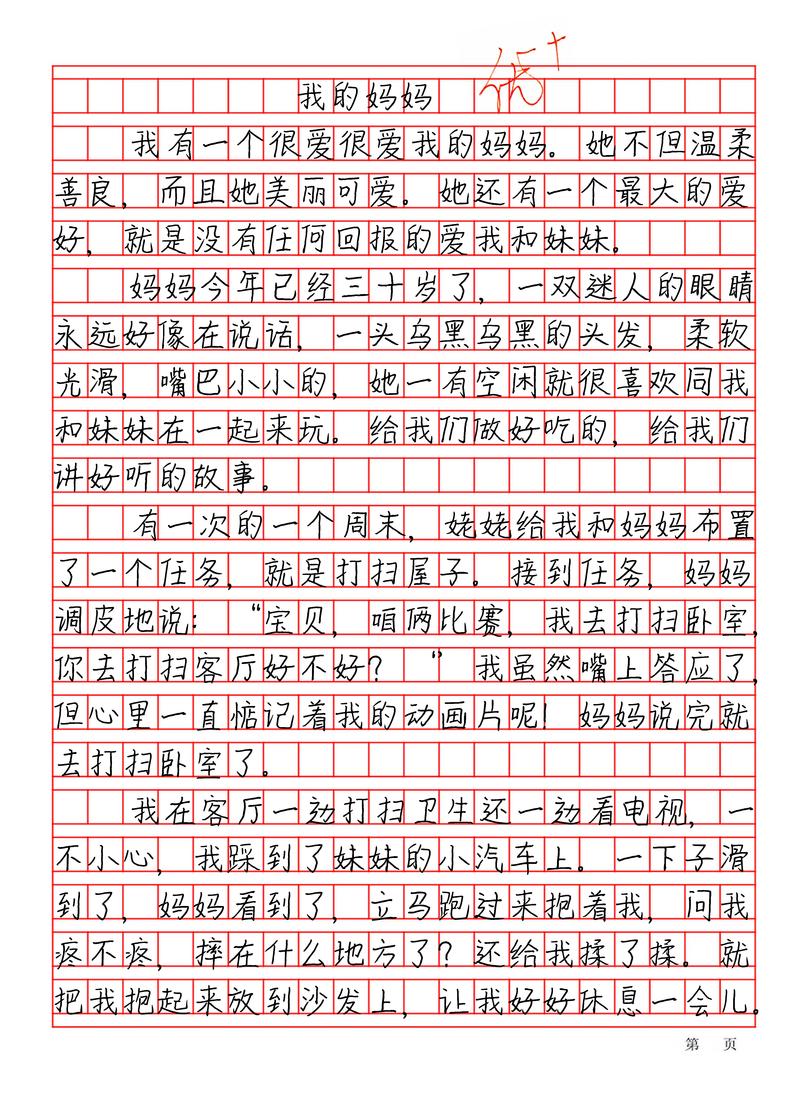 优+
我的妈妈
我有一个很爱很爱我的妈妈。她不但温柔
善良，而且她美丽可爱。她还有一个最大的爱
好，就是没有任何回报的爱我和妹妹。
妈妈今年已经三十岁了，一双迷人的眼睛
永远好像在说话，一头乌黑乌黑的头发，柔软
光滑，嘴巴小小的，她一有空闲就很喜欢同我
和妹妹在一起来玩。给我们做好吃的，给我们
讲好听的故事。
有一次的一个周末，姥姥给我和妈妈布置
了一个任务，就是打扫屋子。接到任务，妈妈
调皮地说：“宝贝，咱俩比赛，我去打扫卧室，
你去打扫客厅好不好？“我虽然嘴上答应了，
但心里一直惦记着我的动画片呢！妈妈说完就
去打扫卧室了。
我在客厅一边打扫卫生还一边看电视，一
不小心，我踩到了妹妹的小汽车上。一下子滑
到了，妈妈看到了，立马跑过来抱着我，问我
疼不疼，摔在什么地方了？还给我揉了揉。就
把我抱起来放到沙发上，让我好好休息一会儿。
第 页